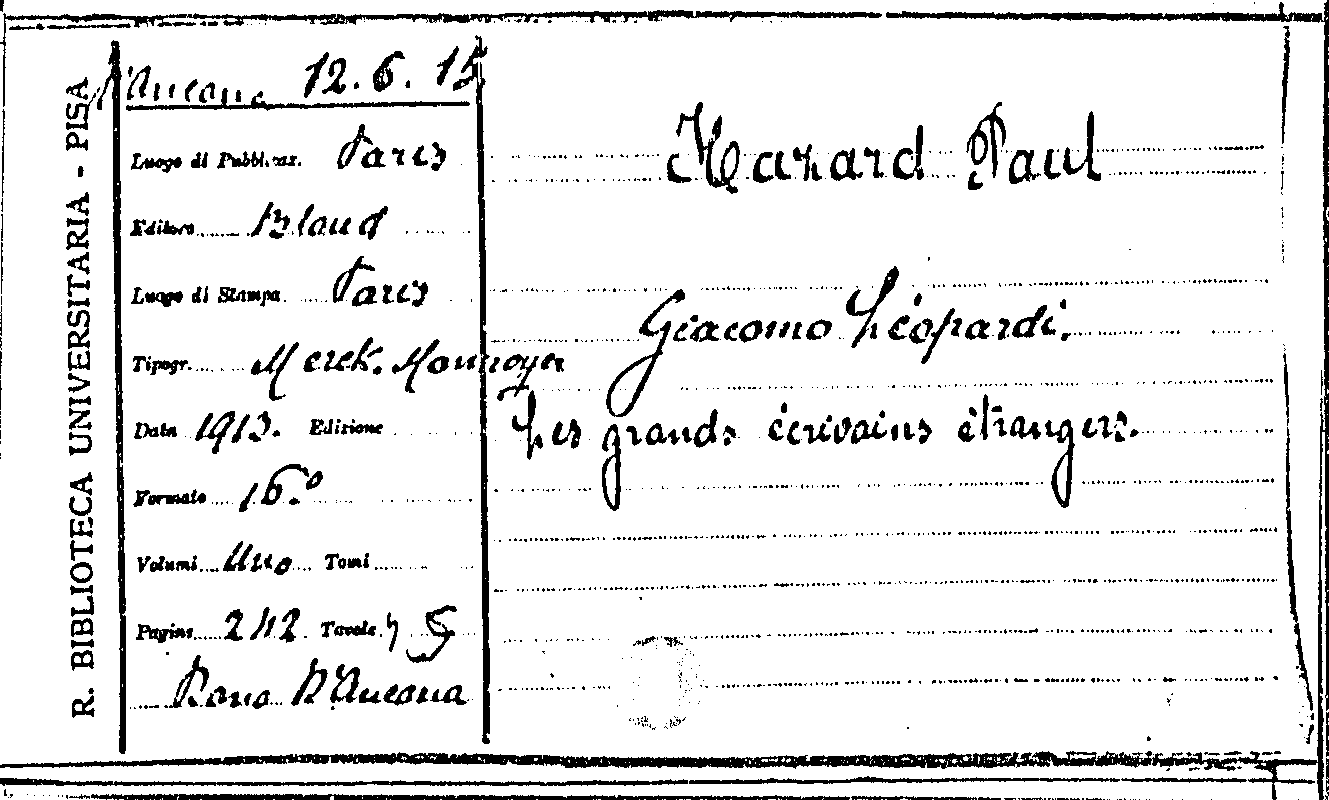 R. BIBLIOTECA UNIVERSITARIA - PISA
D'Ancona 12.6.15
Luogo di Pubblicaz. Paris
Editore Bloud
Luogo di Stampa Paris
Tipogr. Merck. Monnoyer
Data 1913. Edizione
Formato 16.º
Volumi Uno Tomi
Pagine 242 Tavole
Dono D'Ancona
Hazard Paul
Giacomo Léopardi.
Les grands écrivains étrangers.